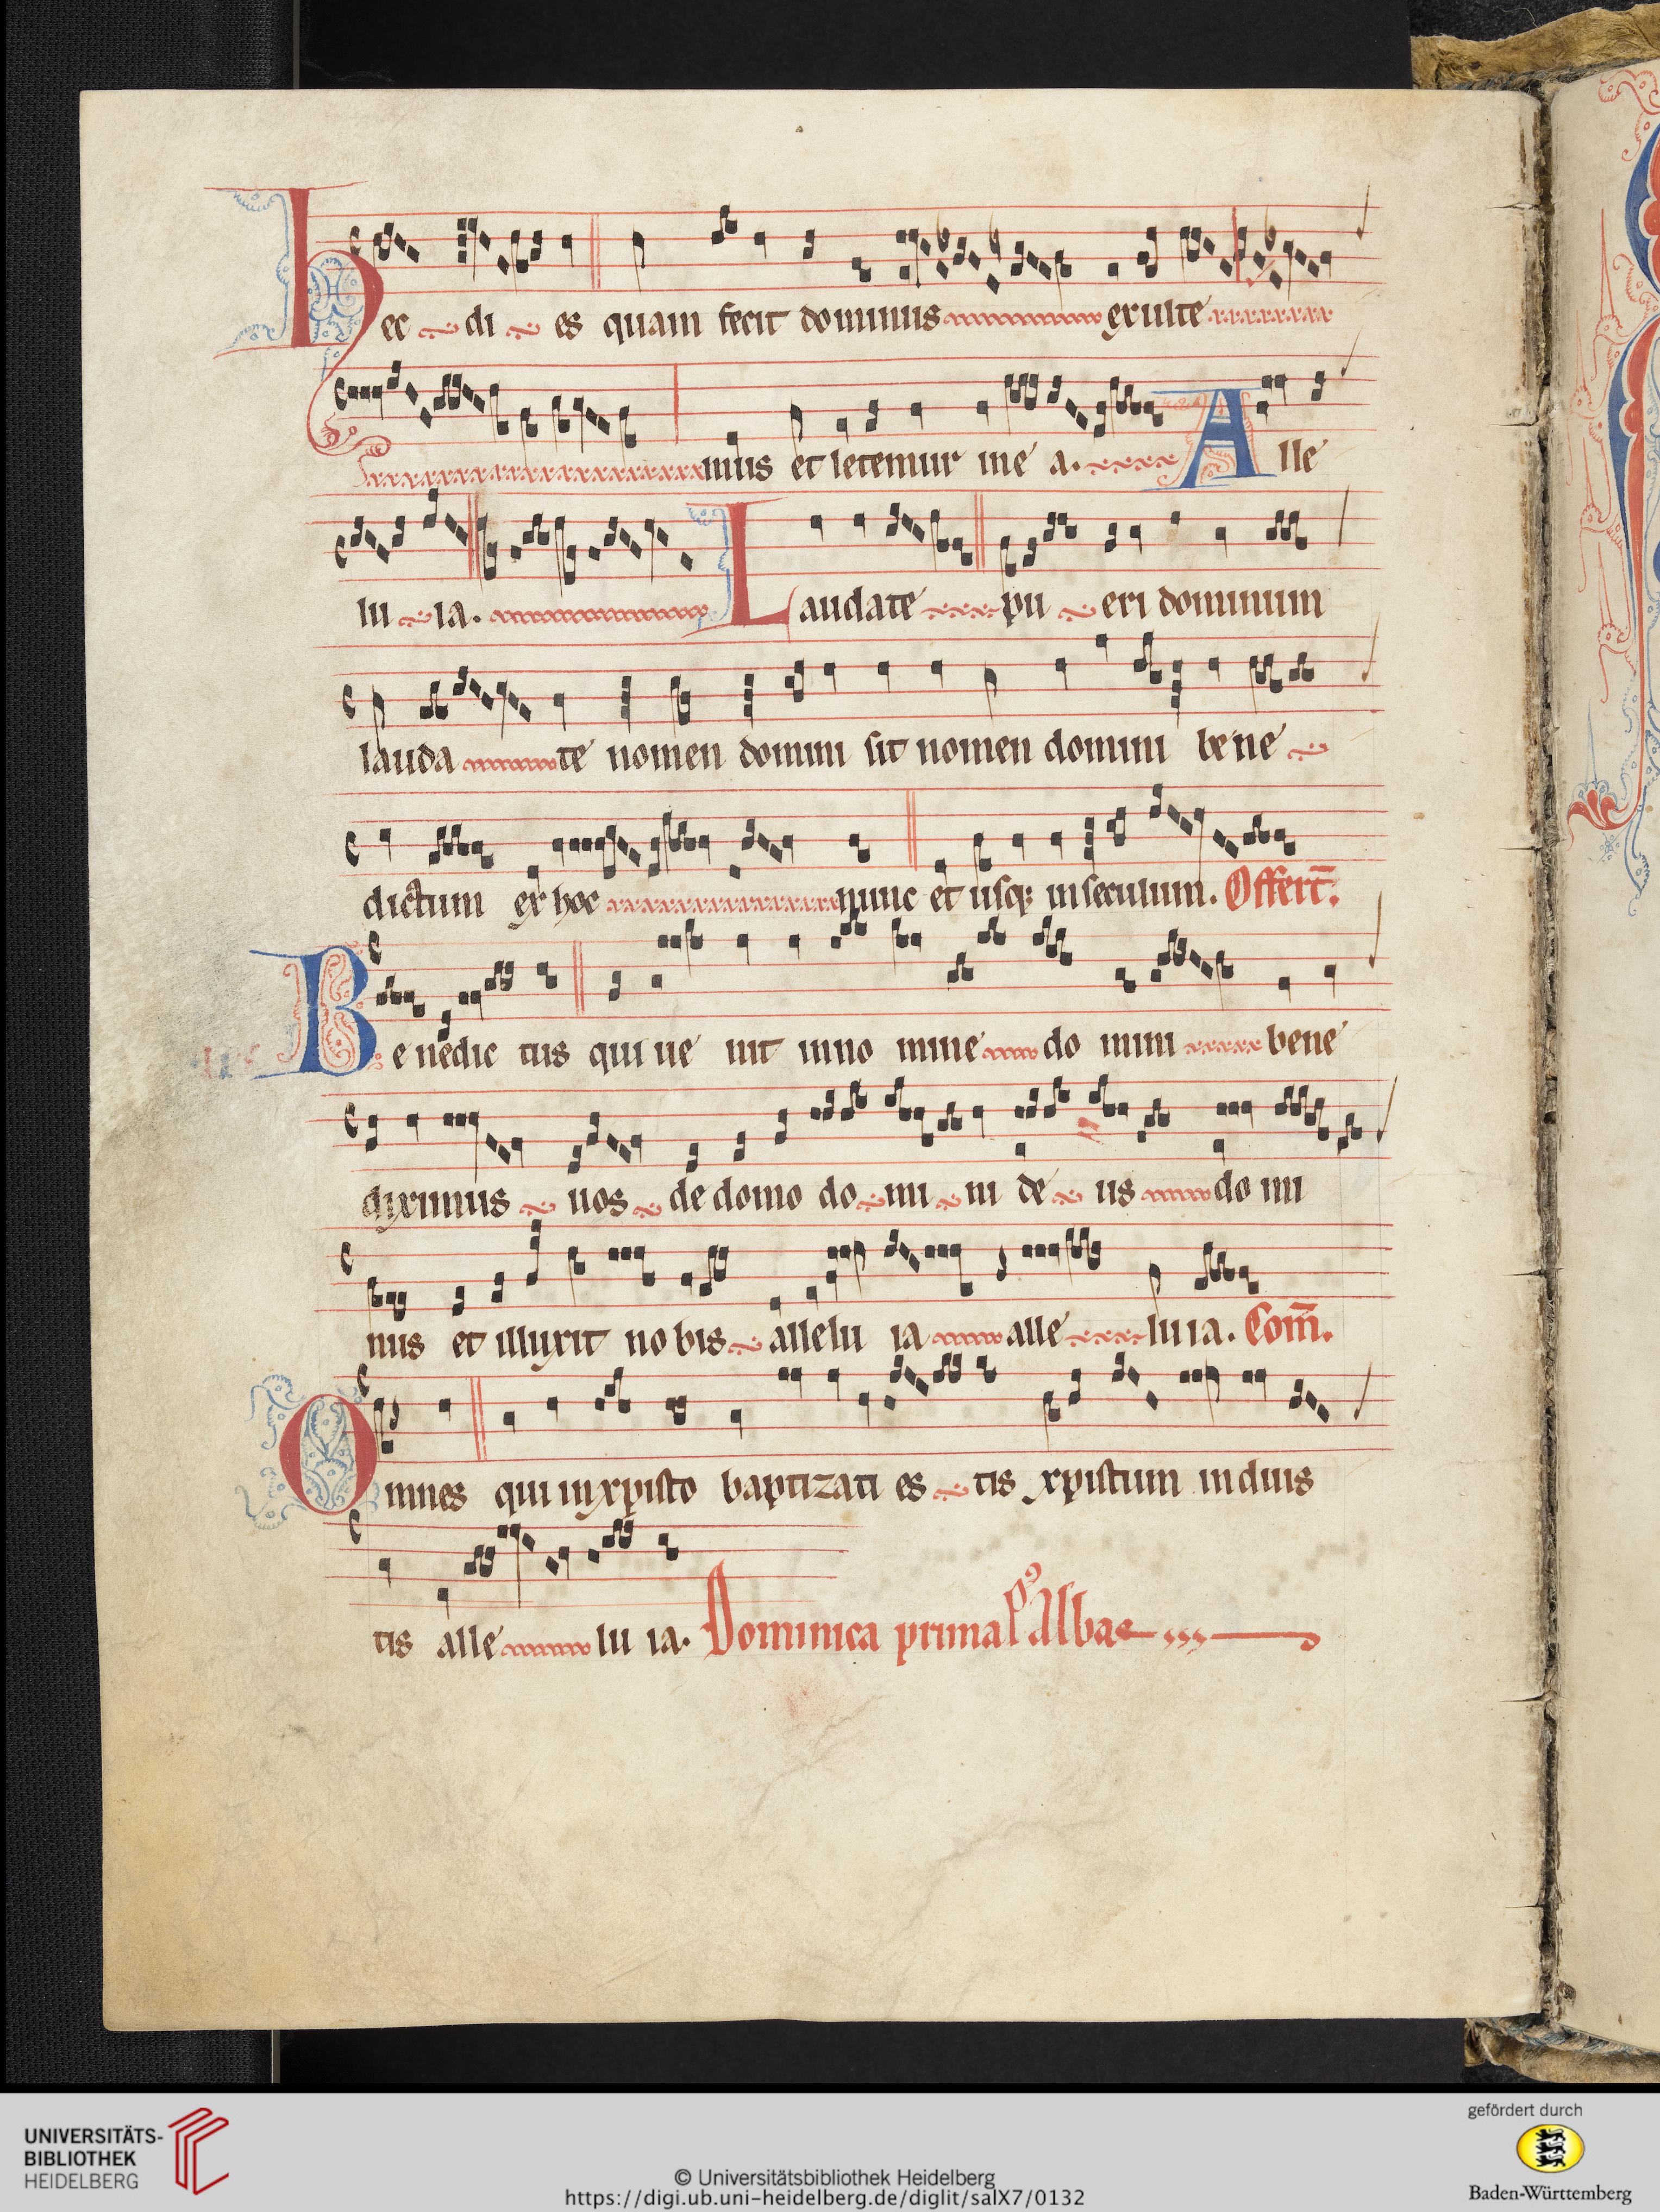 Hec di es quam fecit dominus exulte
mus et letemur in e a. Alle
lu ia. Laudate pu eri dominum
lauda te nomen domini sit nomen domini bene
dictum ex hoc nunc et usq; in seculum. Offert̄.
Benedic tus qui ue nit in no mine do mini bene
diximus uos de domo do mi ni de us do mi
nus et illuxit no bis allelu ia alle luia. Com̄.
Omnes qui in xpisto baptizati es tis xpistum induis
tis alle lu ia. Dominica prima pꝰ Albas
UNIVERSITÄTS-
BIBLIOTHEK
HEIDELBERG
© Universitätsbibliothek Heidelberg
https://digi.ub.uni-heidelberg.de/diglit/salX7/0132
gefördert durch
Baden-Württemberg